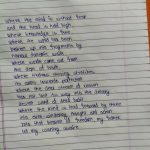 Where the mind is without fear
and the head is held high
where knowledge is free
where the world has been
broken up into fragments by
narrow domestic walls
where words come out from
the depth of truth
where tireless striving stretches
its arms towards perfection
where the clear stream of reason
has not lost its way into the dreary
desert sand of dead habit
where the mind is led forward by thee
into ever widening thought and action
into that heaven of freedom, my father
let my country awake